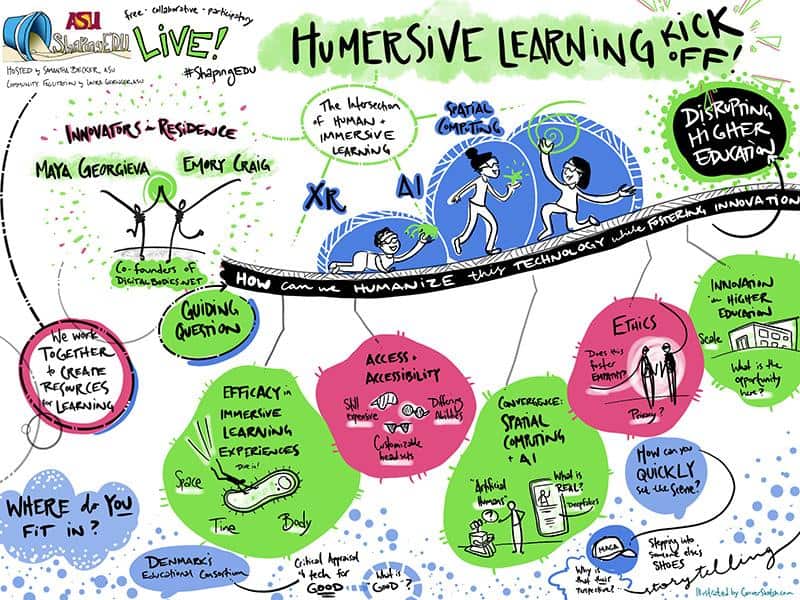 ASU
ShapingEDU
free · collaborative · participatory
LIVE!
#ShapingEDU
HOSTED by SAMANTHA BECKER, ASU
COMMUNITY FACILITATION by LAURA GERINGER, ASU
HUMERSIVE LEARNING KICK OFF!
INNOVATORS in RESIDENCE
MAYA GEORGIEVA
EMORY CRAIG
CO-founders OF
DIGITALBODIES.NET
The Intersection
OF HUMAN +
IMMERSIVE
LEARNING
XR
AI
SPATIAL
COMPUTING
DISRUPTING
HIGHER
EDUCATION
GUIDING
QUESTION
HOW can we HUMANIZE this TECHNOLOGY while FOSTERING INNOVATION
We work
TOGETHER
to CREATE
RESOURCES
for LEARNING
EFFICACY in
IMMERSIVE
LEARNING
EXPERIENCES
Dive in!
Space
Time
Body
ACCESS +
ACCESSIBILITY
Still
expensive
Differing
Abilities
Customizable
headsets
CONVERGENCE:
SPATIAL
COMPUTING
+ AI
"Artificial
Humans"
?
What is
REAL?
Deepfakes
ETHICS
Does this
foster
EMPATHY?
Privacy?
INNOVATION
in HIGHER
EDUCATION
Scale
What is the
opportunity
here?
WHERE do YOU
FIT IN?
DENMARK'S
Educational Consortium
Critical Appraisal
of tech for
GOOD
What is
"GOOD"?
How can you
QUICKLY
set the scene?
MAGA
Why is
that their
perspective?
Stepping into
someone else's
SHOES
storytelling
Illustrated by ConverSketch.com